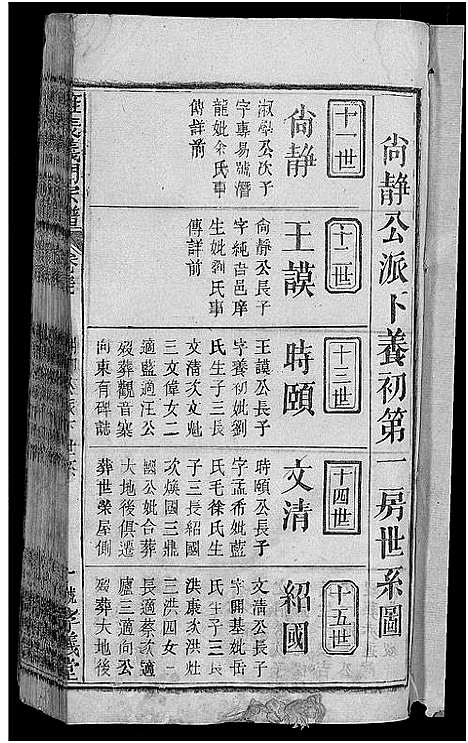 尙静公派下養初第一房世系圖
十一世
尙静
淑學公次子
字專易號潛
龍妣余氏事
傳詳前
十二世
王謨
尙靜公長子
字純吉邑庠
生妣劉氏事
傳詳前
十三世
時頤
王謨公長子
字養初妣劉
氏生子三長
文清次文魁
三文偉女二
適藍適汪公
歿葬觀音寨
向東有碑誌
十四世
文清
時頤公長子
字孟希妣藍
氏毛徐氏生
子三長紹國
次煥國三鼎
國公妣合葬
大地後俱遷
葬世榮屋側
十五世
紹國
文清公長子
字開基妣岳
氏生子三長
洪康次洪灶
三洪四女二
長適蔡次適
盧三適向公
歿葬大地後
孝義堂